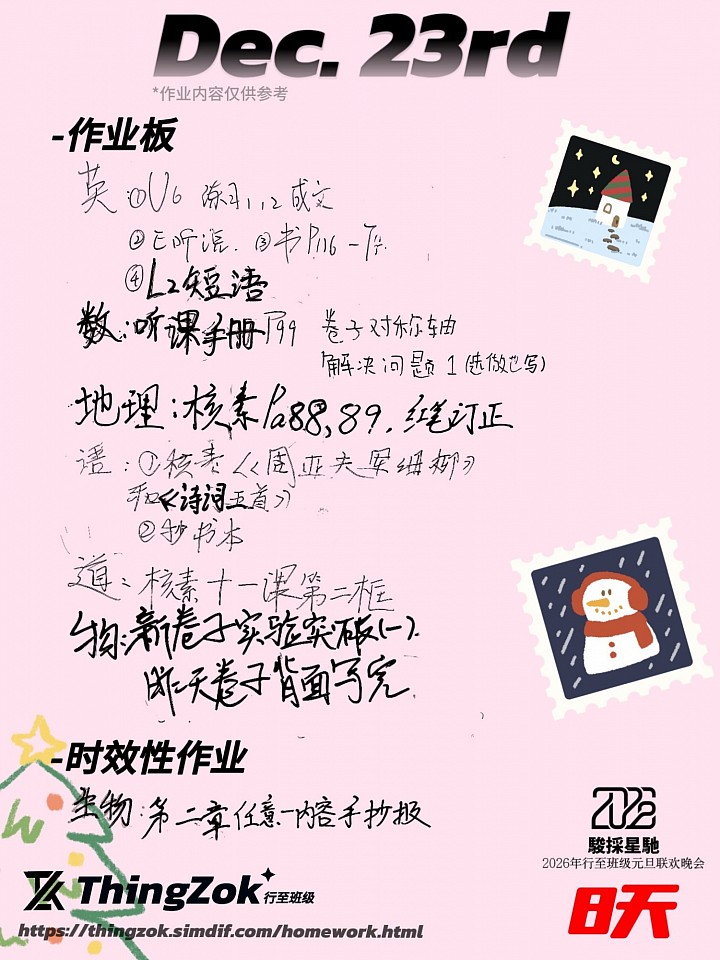 Dec. 23rd
*作业内容仅供参考
-作业板
英:①U6 练习1,2成文
②E听课.③书P116-
④L2短语
数:听课手册P99 卷子对称轴
解决问题1(选做也写)
地理:核素Pa88,89.红笔订正
语:①核素《周亚夫军细柳》
和《诗词五首》
②抄书本
道:核素十一课第二框
物:新卷子实验突破(一).
昨天卷子背面写完.
-时效性作业
生物:第二章任意一内容手抄报
2026
駿採星馳
2026年行至班级元旦联欢晚会
8天
ThingZok
行至班级
https://thingzok.simdif.com/homework.html